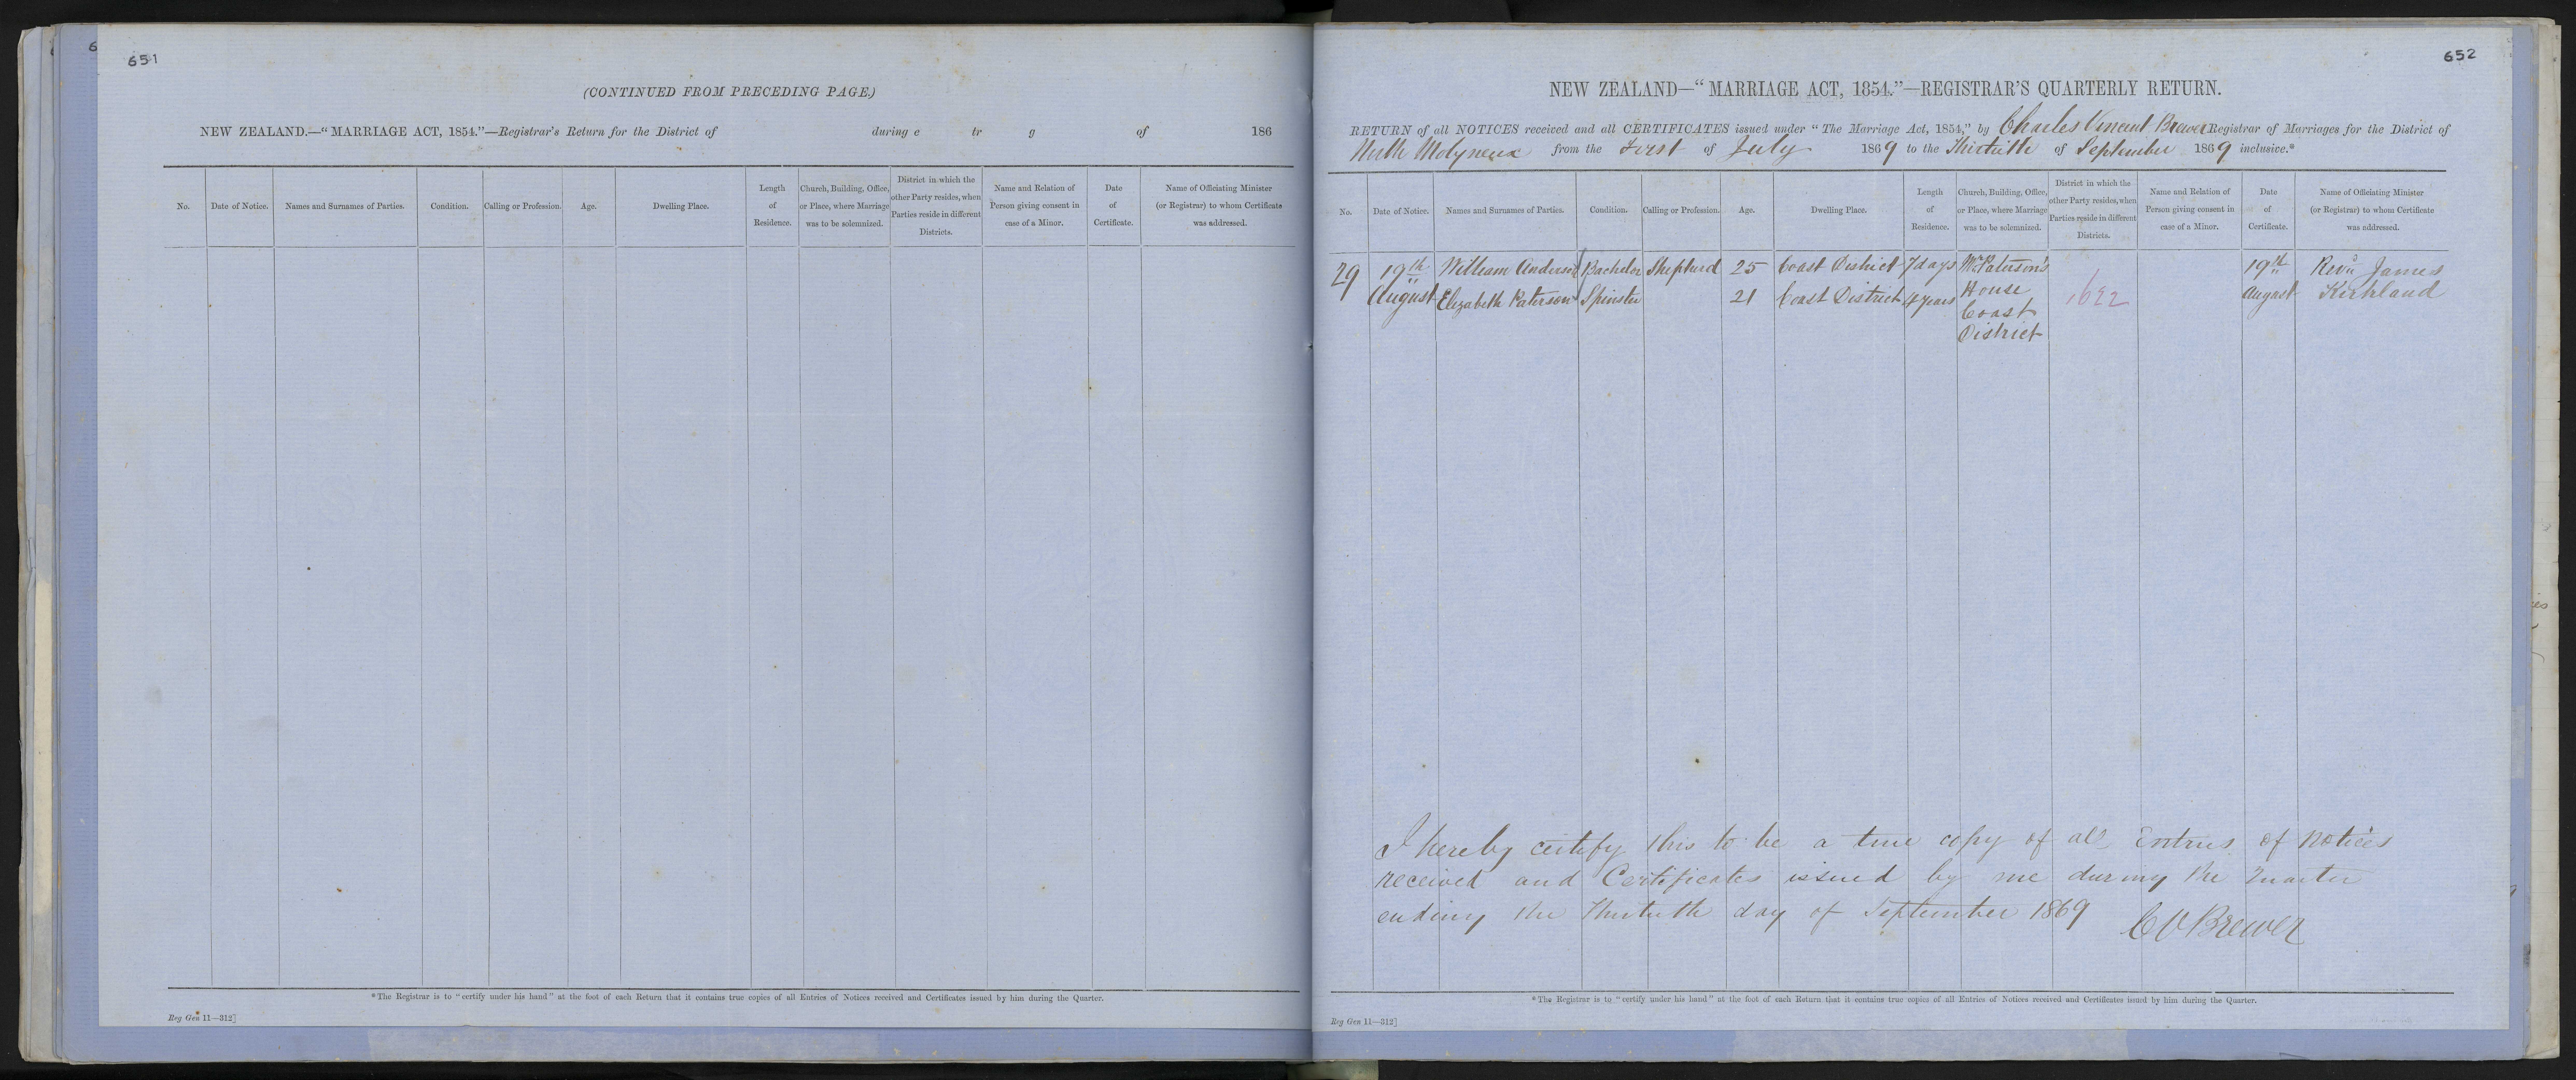 6
651
(CONTINUED FROM PRECEDING PAGE.)
NEW ZEALAND.—“MARRIAGE ACT, 1854.”—Registrar's Return for the District of during e tr g of 186
No. Date of Notice. Names and Surnames of Parties. Condition. Calling or Profession. Age. Dwelling Place. Length of Residence. Church, Building, Office, or Place, where Marriage was to be solemnized. District in which the other Party resides, when Parties reside in different Districts. Name and Relation of Person giving consent in case of a Minor. Date of Certificate. Name of Officiating Minister (or Registrar) to whom Certificate was addressed.
*The Registrar is to “certify under his hand” at the foot of each Return that it contains true copies of all Entries of Notices received and Certificates issued by him during the Quarter.
Reg Gen 11—312]
652
NEW ZEALAND—“MARRIAGE ACT, 1854.”—REGISTRAR'S QUARTERLY RETURN.
RETURN of all NOTICES received and all CERTIFICATES issued under “The Marriage Act, 1854,” by Charles Vincent Brewer Registrar of Marriages for the District of
North Molyneux from the First of July 1869 to the Thirtieth of September 1869 inclusive.*
No. Date of Notice. Names and Surnames of Parties. Condition. Calling or Profession. Age. Dwelling Place. Length of Residence. Church, Building, Office, or Place, where Marriage was to be solemnized. District in which the other Party resides, when Parties reside in different Districts. Name and Relation of Person giving consent in case of a Minor. Date of Certificate. Name of Officiating Minister (or Registrar) to whom Certificate was addressed.
29 19th William Anderson Bachelor Shepherd 25 Coast District 7 days Mr Paterson's 19th Revd James
August Elizabeth Paterson Spinster 21 Coast District 4 years House 1622 August Kirkland
Coast
District
I hereby certify this to be a true copy of all Entries of Notices
received and Certificates issued by me during the Quarter
ending the Thirtieth day of September 1869 C V Brewer
*The Registrar is to “certify under his hand” at the foot of each Return that it contains true copies of all Entries of Notices received and Certificates issued by him during the Quarter.
Reg Gen 11—312]